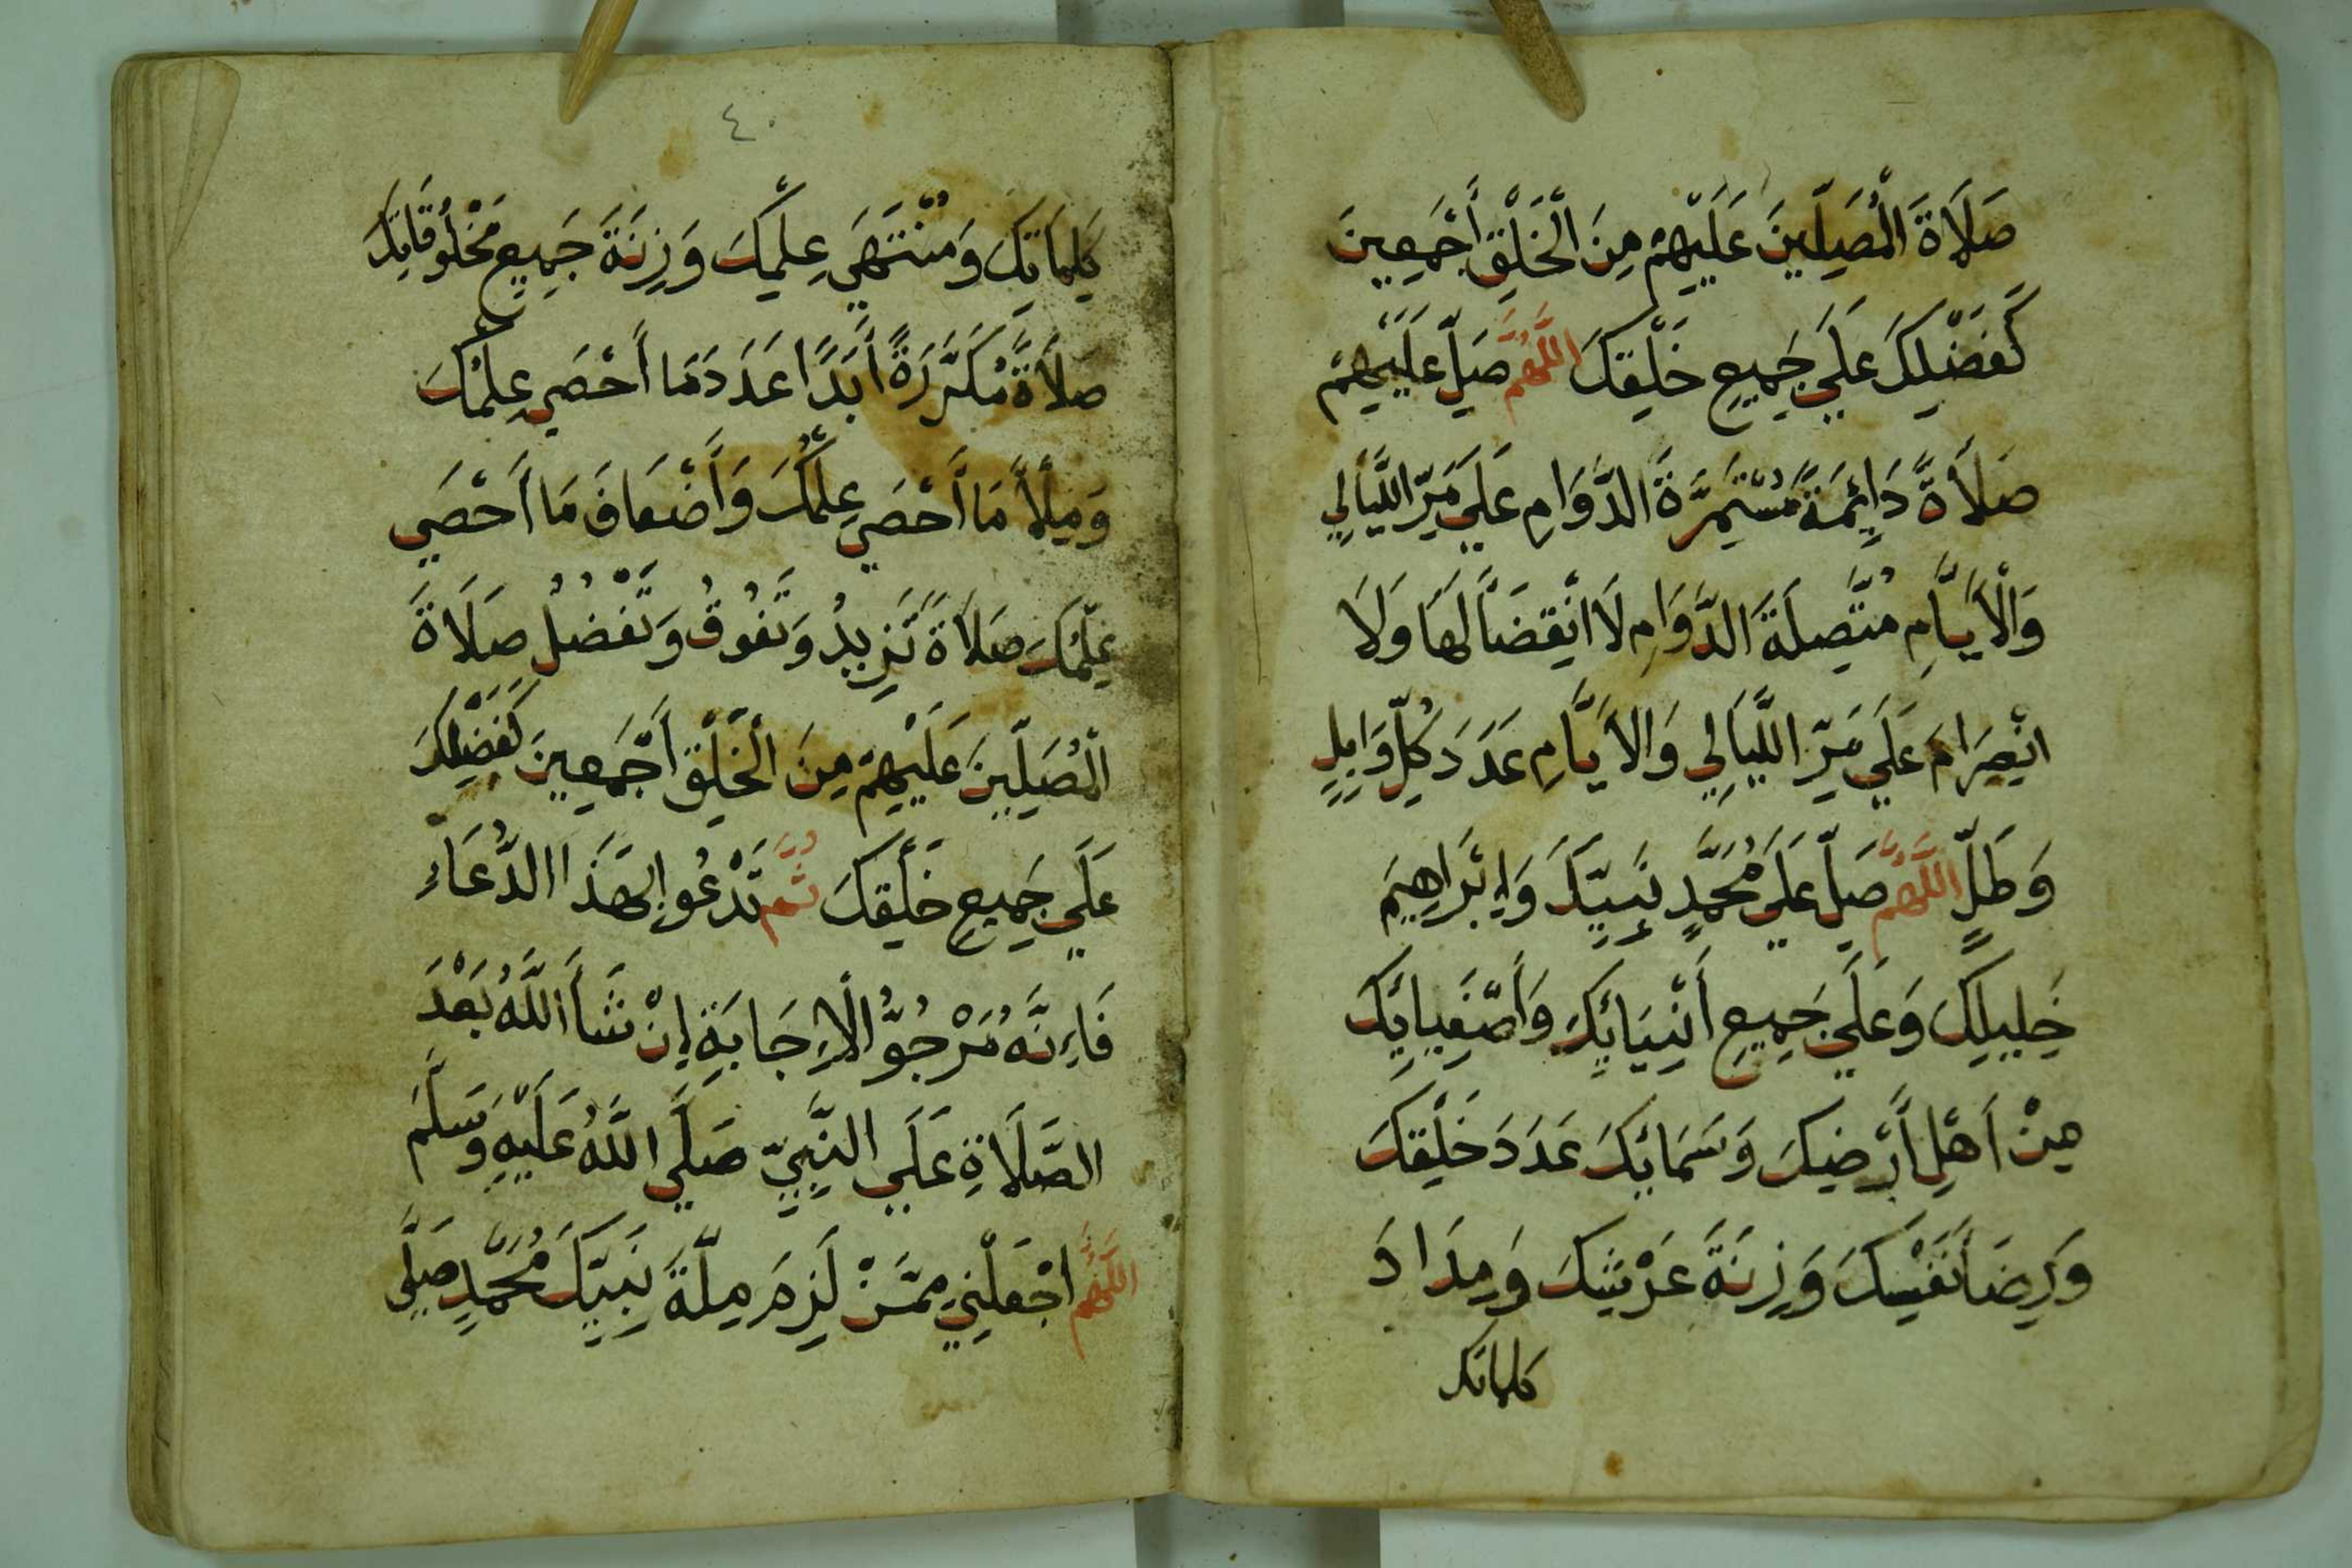 صَلَاةَ الْمُصَلِّينَ عَلَيْهِمْ مِنَ الْخَلْقِ أَجْمَعِينَ
كَفَضْلِكَ عَلَي جَمِيعِ خَلْقِكَ اللَّهُمَّ صَلِّ عَلَيْهِمْ
صَلَاةً دَائِمَةً مُسْتَمِرَّةَ الدَّوَامِ عَلَي مَرِّ اللَّيَالِي
وَالْأَيَّامِ مُتَّصِلَةَ الدَّوَامِ لَا انْقِضَاَ لَهَا وَلَا
انْصِرَامَ عَلَي مَرِّ اللَّيَالِي وَالْأَيَّامِ عَدَدَ كُلِّ وَابِلٍ
وَطَلٍّ اللَّهُمَّ صَلِّ عَلَي مُحَمَّدٍ نَبِيِّكَ وَإِبْرَاهِيمَ
خَلِيلِكَ وَعَلَي جَمِيعِ أَنْبِيَائِكَ وَأَصْفِيَائِكَ
مِنْ أَهْلِ أَرْضِكَ وَسَمَائِكَ عَدَدَ خَلْقِكَ
وَرِضَاَ نَفْسِكَ وَزِنَةَ عَرْشِكَ وَمِدَادَ
كلماتك
٤٠
كَلِمَاتِكَ وَمُنْتَهَي عِلْمِكَ وَزِنَةَ جَمِيعِ مَخْلُوقَاتِكَ
صَلَاةً مُكَرَّرَةً أَبَدًا عَدَدَ مَا أَحْصَي عِلْمُكَ
وَمِلْأَ مَا أَحْصَي عِلْمُكَ وَأَضْعَافَ مَا أَحْصَي
عِلْمُكَ صَلَاةً تَزِيدُ وَتَفُوقُ وَتَفْضُلُ صَلَاةَ
الْمُصَلِّينَ عَلَيْهِمْ مِنَ الْخَلْقِ أَجْمَعِينَ كَفَضْلِكَ
عَلَي جَمِيعِ خَلْقِكَ ثُمَّ تَدْعُو بِهَذَا الدُّعَاءِ
فَإِنَّهُ مَرْجُوُّ الْإِجَابَةِ إِنْ شَأَ اللَّهُ بَعْدَ
الصَّلَاةِ عَلَي النَّبِيِّ صَلَّي اللَّهُ عَلَيْهِ وَسَلَّمَ
اللَّهُمَّ اجْعَلْنِي مِمَّنْ لَزِمَ مِلَّةَ نَبِيِّكَ مُحَمَّدٍ صَلَّي